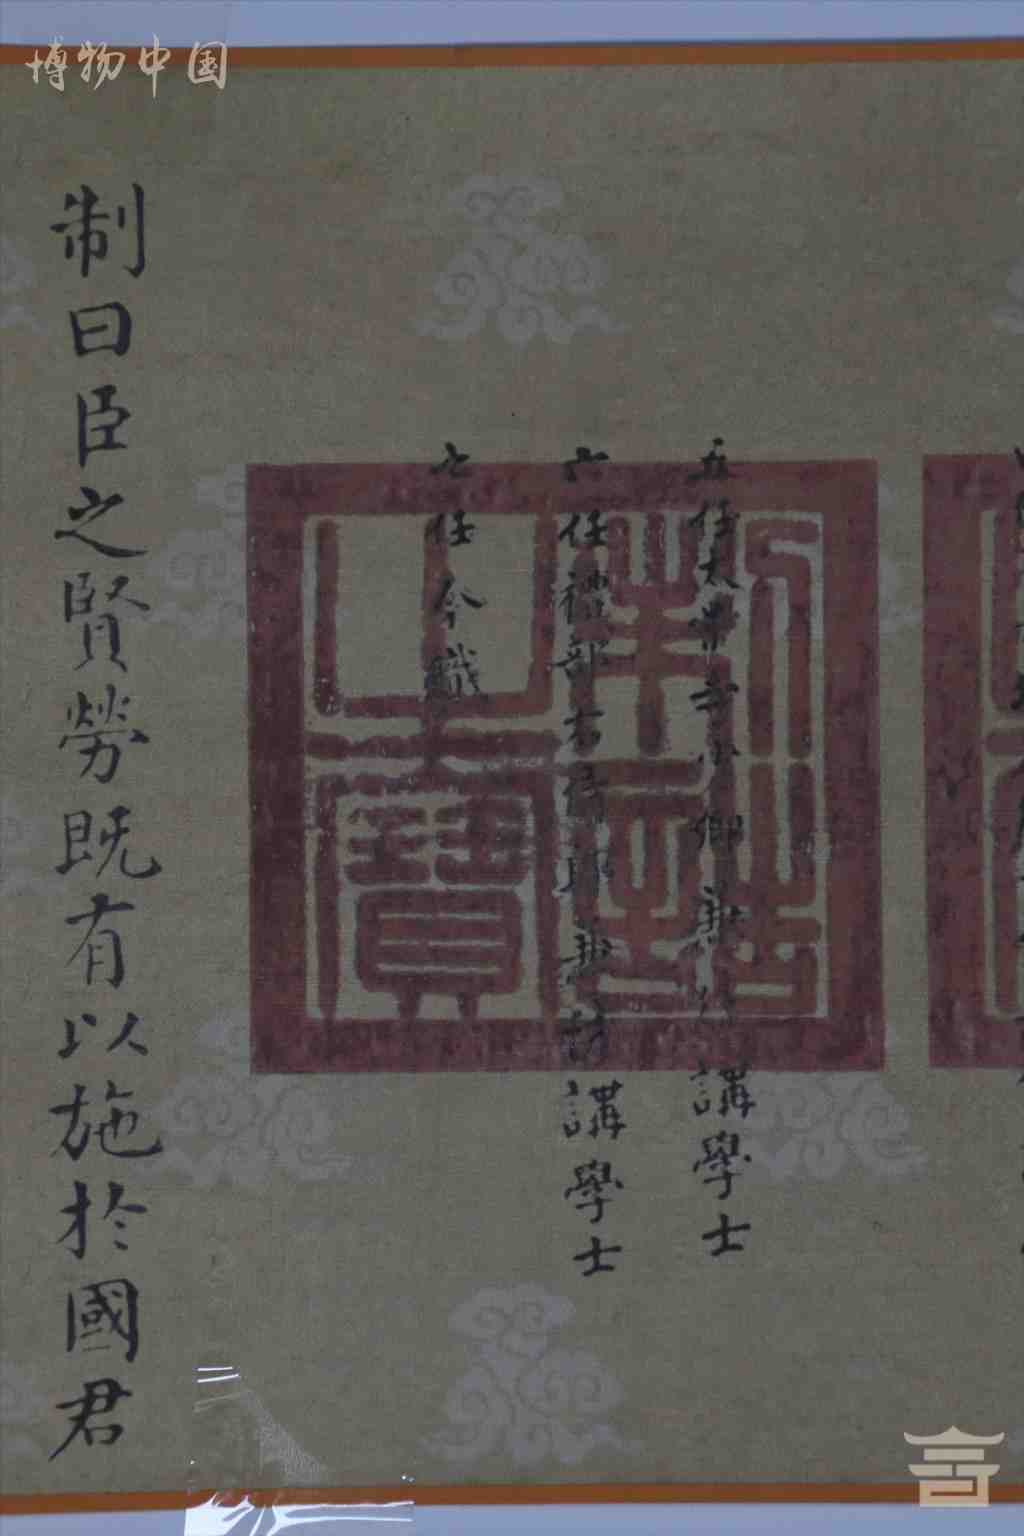 博物中国
五任太常寺少卿兼侍講學士
六任禮部右侍郎兼侍講學士
七任今職
制誥
之寶
制曰臣之賢勞既有以施於國君